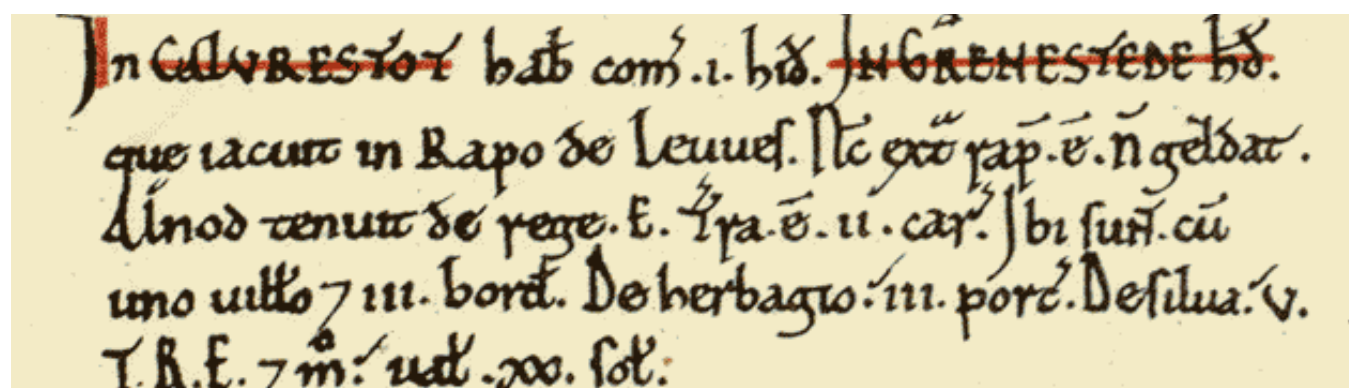 In CALVRESTOT hab̄ com̄ .i. hid̄. IN GRENESTEDE hd̄.
que iacuit in Rapo de Leuues. Nc̄ ext̄ rap̄. ē. n̄ geldat.
Alnod tenuit de rege. E. T̄ra. ē. ii. car̄. Ibi sunt̄. cū
uno uiłło ⁊ iii. bord̄. De herbagio: iii. porc̄. De silua: v.
T. R. E. ⁊ m̊: uał .xx. soł.